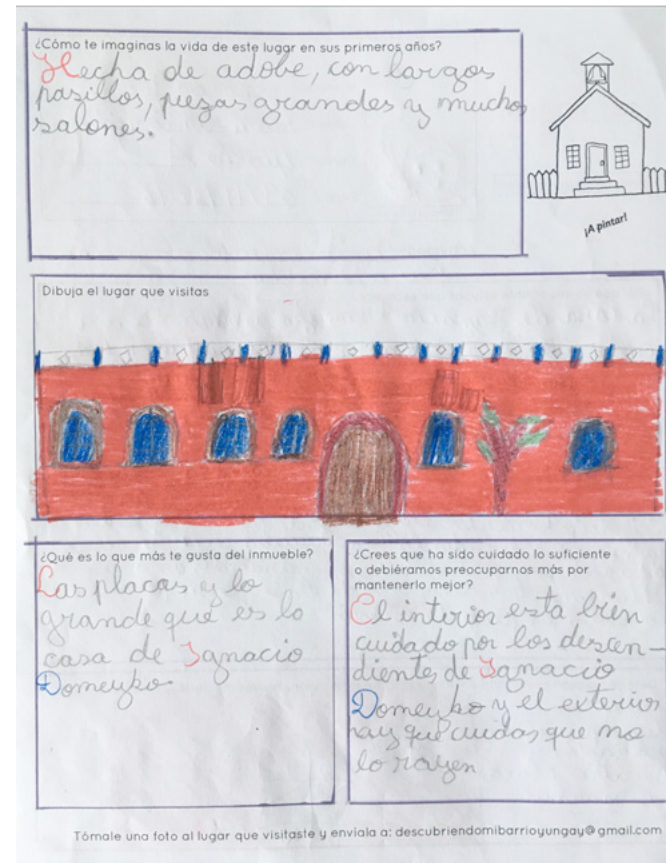 ¿Cómo te imaginas la vida de este lugar en sus primeros años?
Hecha de adobe, con largos
pasillos, piezas grandes y muchos
salones.
¡A pintar!
Dibuja el lugar que visitas
¿Qué es lo que más te gusta del inmueble?
Las placas y lo
grande que es lo
casa de Ignacio
Domeyko
¿Crees que ha sido cuidado lo suficiente
o debiéramos preocuparnos más por
mantenerlo mejor?
El interior esta bien
cuidado por los descen-
dientes de Ignacio
Domeyko y el exterior
hay que cuidar que no
lo rayen
Tómale una foto al lugar que visitaste y envíala a: descubriendomibarrioyungay@gmail.com